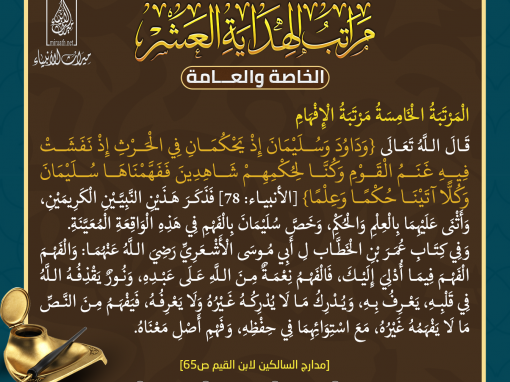 مَرَاتِبُ الهِدَايَةِ العَشْرِ
الخاصة والعـــامة
ميراث الأنبياء
miraath.net
الْمَرْتَبَةُ الْخَامِسَةُ مَرْتَبَةُ الْإِفْهَامِ
قَالَ اللَّهُ تَعَالَى {وَدَاوُدَ وَسُلَيْمَانَ إِذْ يَحْكُمَانِ فِي الْحَرْثِ إِذْ نَفَشَتْ
فِيهِ غَنَمُ الْقَوْمِ وَكُنَّا لِحُكْمِهِمْ شَاهِدِينَ فَفَهَّمْنَاهَا سُلَيْمَانَ
وَكُلًّا آتَيْنَا حُكْمًا وَعِلْمًا} [الأنبياء: 78] فَذَكَرَ هَذَيْنِ النَّبِيَّيْنِ الْكَرِيمَيْنِ،
وَأَثْنَى عَلَيْهِمَا بِالْعِلْمِ وَالْحُكْمِ، وَخَصَّ سُلَيْمَانَ بِالْفَهْمِ فِي هَذِهِ الْوَاقِعَةِ الْمُعَيَّنَةِ.
وَفِي كِتَابِ عُمَرَ بْنِ الْخَطَّابِ لِ أَبِي مُوسَى الْأَشْعَرِيِّ رَضِيَ اللَّهُ عَنْهُمَا: وَالْفَهْمَ
الْفَهْمَ فِيمَا أُدْلِيَ إِلَيْكَ، فَالْفَهْمُ نِعْمَةٌ مِنَ اللَّهِ عَلَى عَبْدِهِ، وَنُورٌ يَقْذِفُهُ اللَّهُ
فِي قَلْبِهِ، يَعْرِفُ بِهِ، وَيُدْرِكُ مَا لَا يُدْرِكُهُ غَيْرُهُ وَلَا يَعْرِفُهُ، فَيَفْهَمُ مِنَ النَّصِّ
مَا لَا يَفْهَمُهُ غَيْرُهُ، مَعَ اسْتِوَائِهِمَا فِي حِفْظِهِ، وَفَهْمِ أَصْلِ مَعْنَاهُ.
[مدارج السالكين لابن القيم ص65]